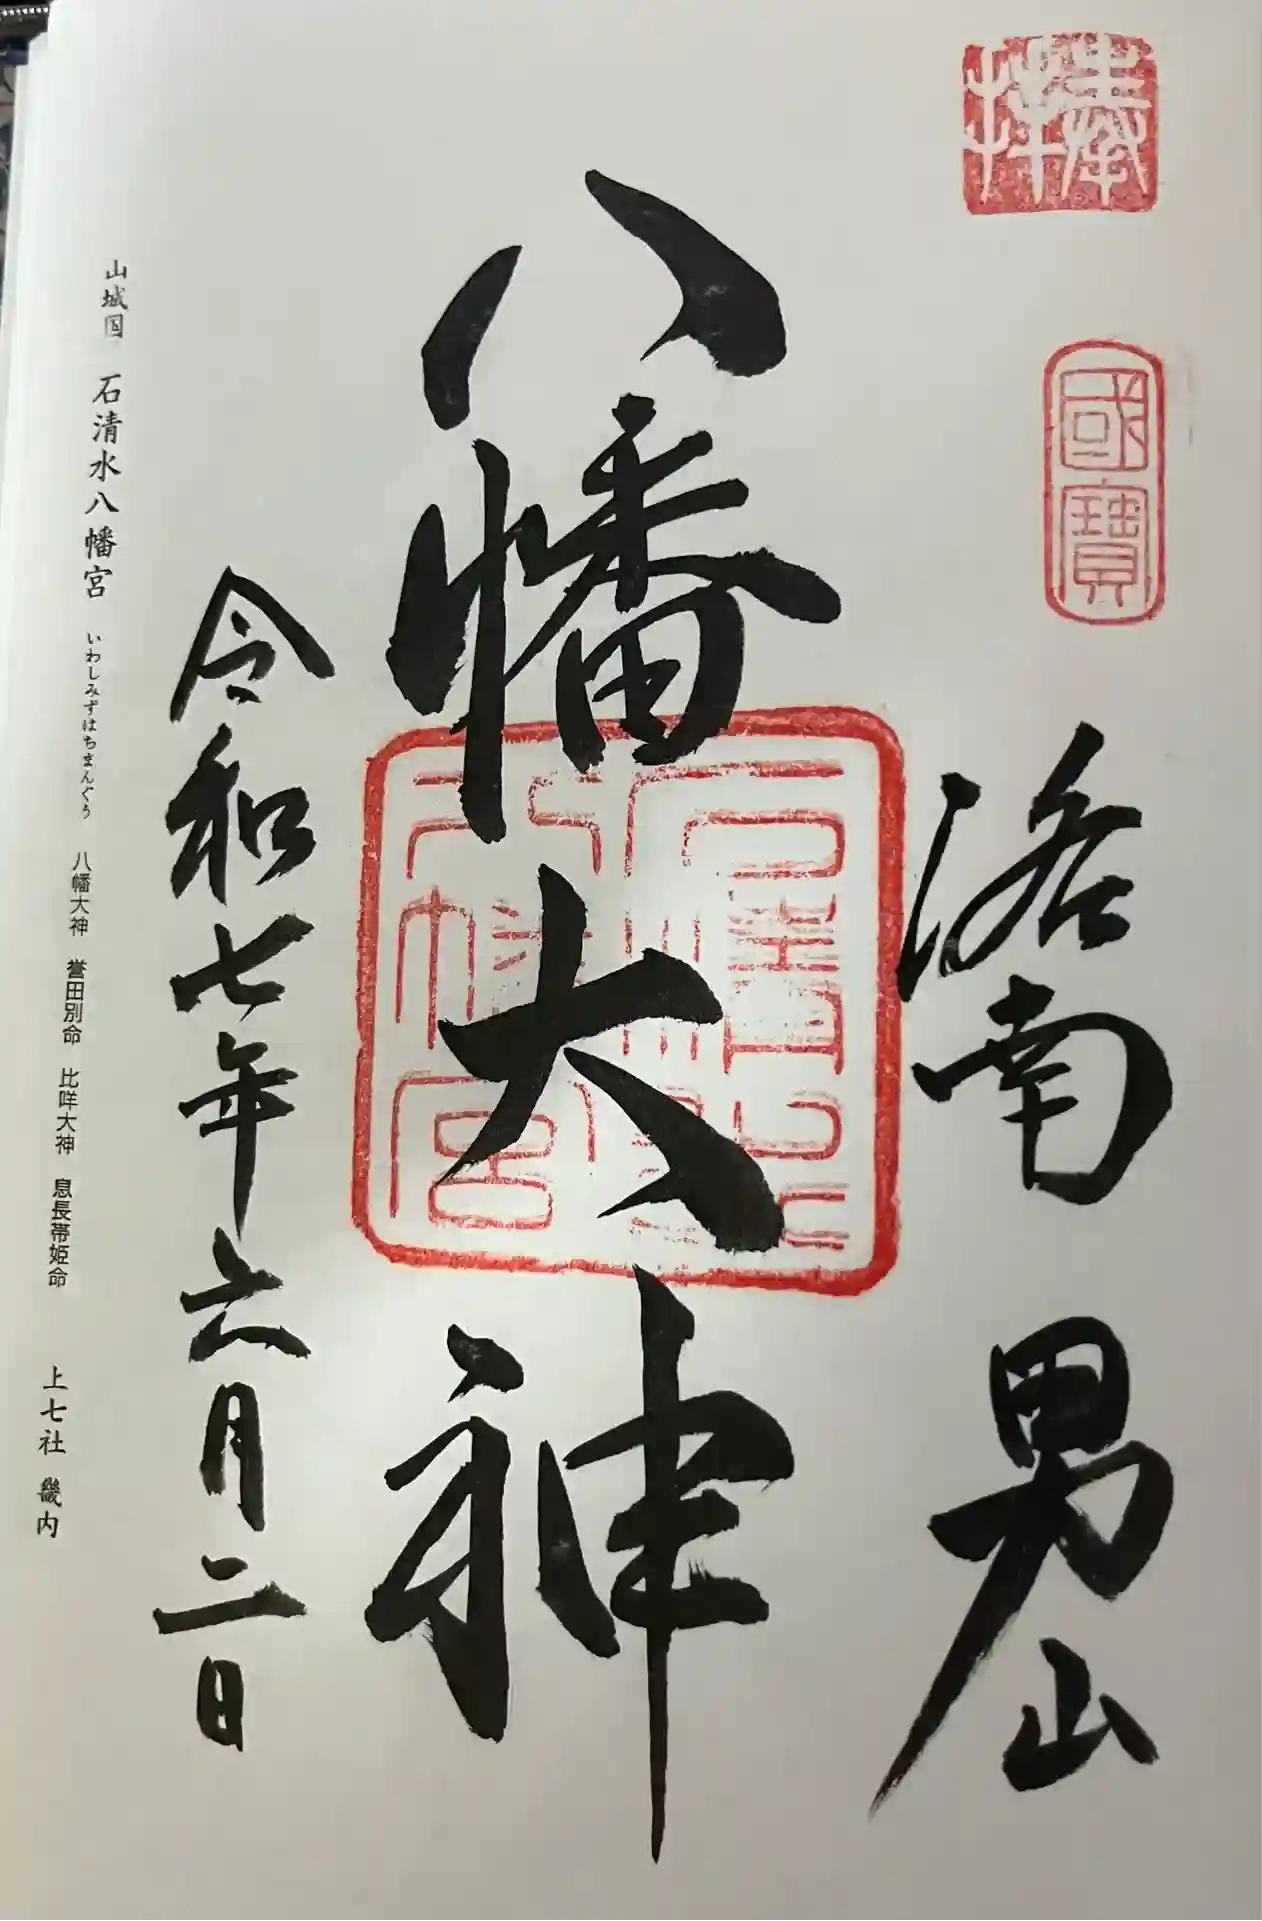 奉拝
國寶
洛南 男山
八幡大神
令和七年六月二日
山城国 石清水八幡宮 いわしみずはちまんぐう 八幡大神 誉田別命 比咩大神 息長帯姫命 上七社 畿内